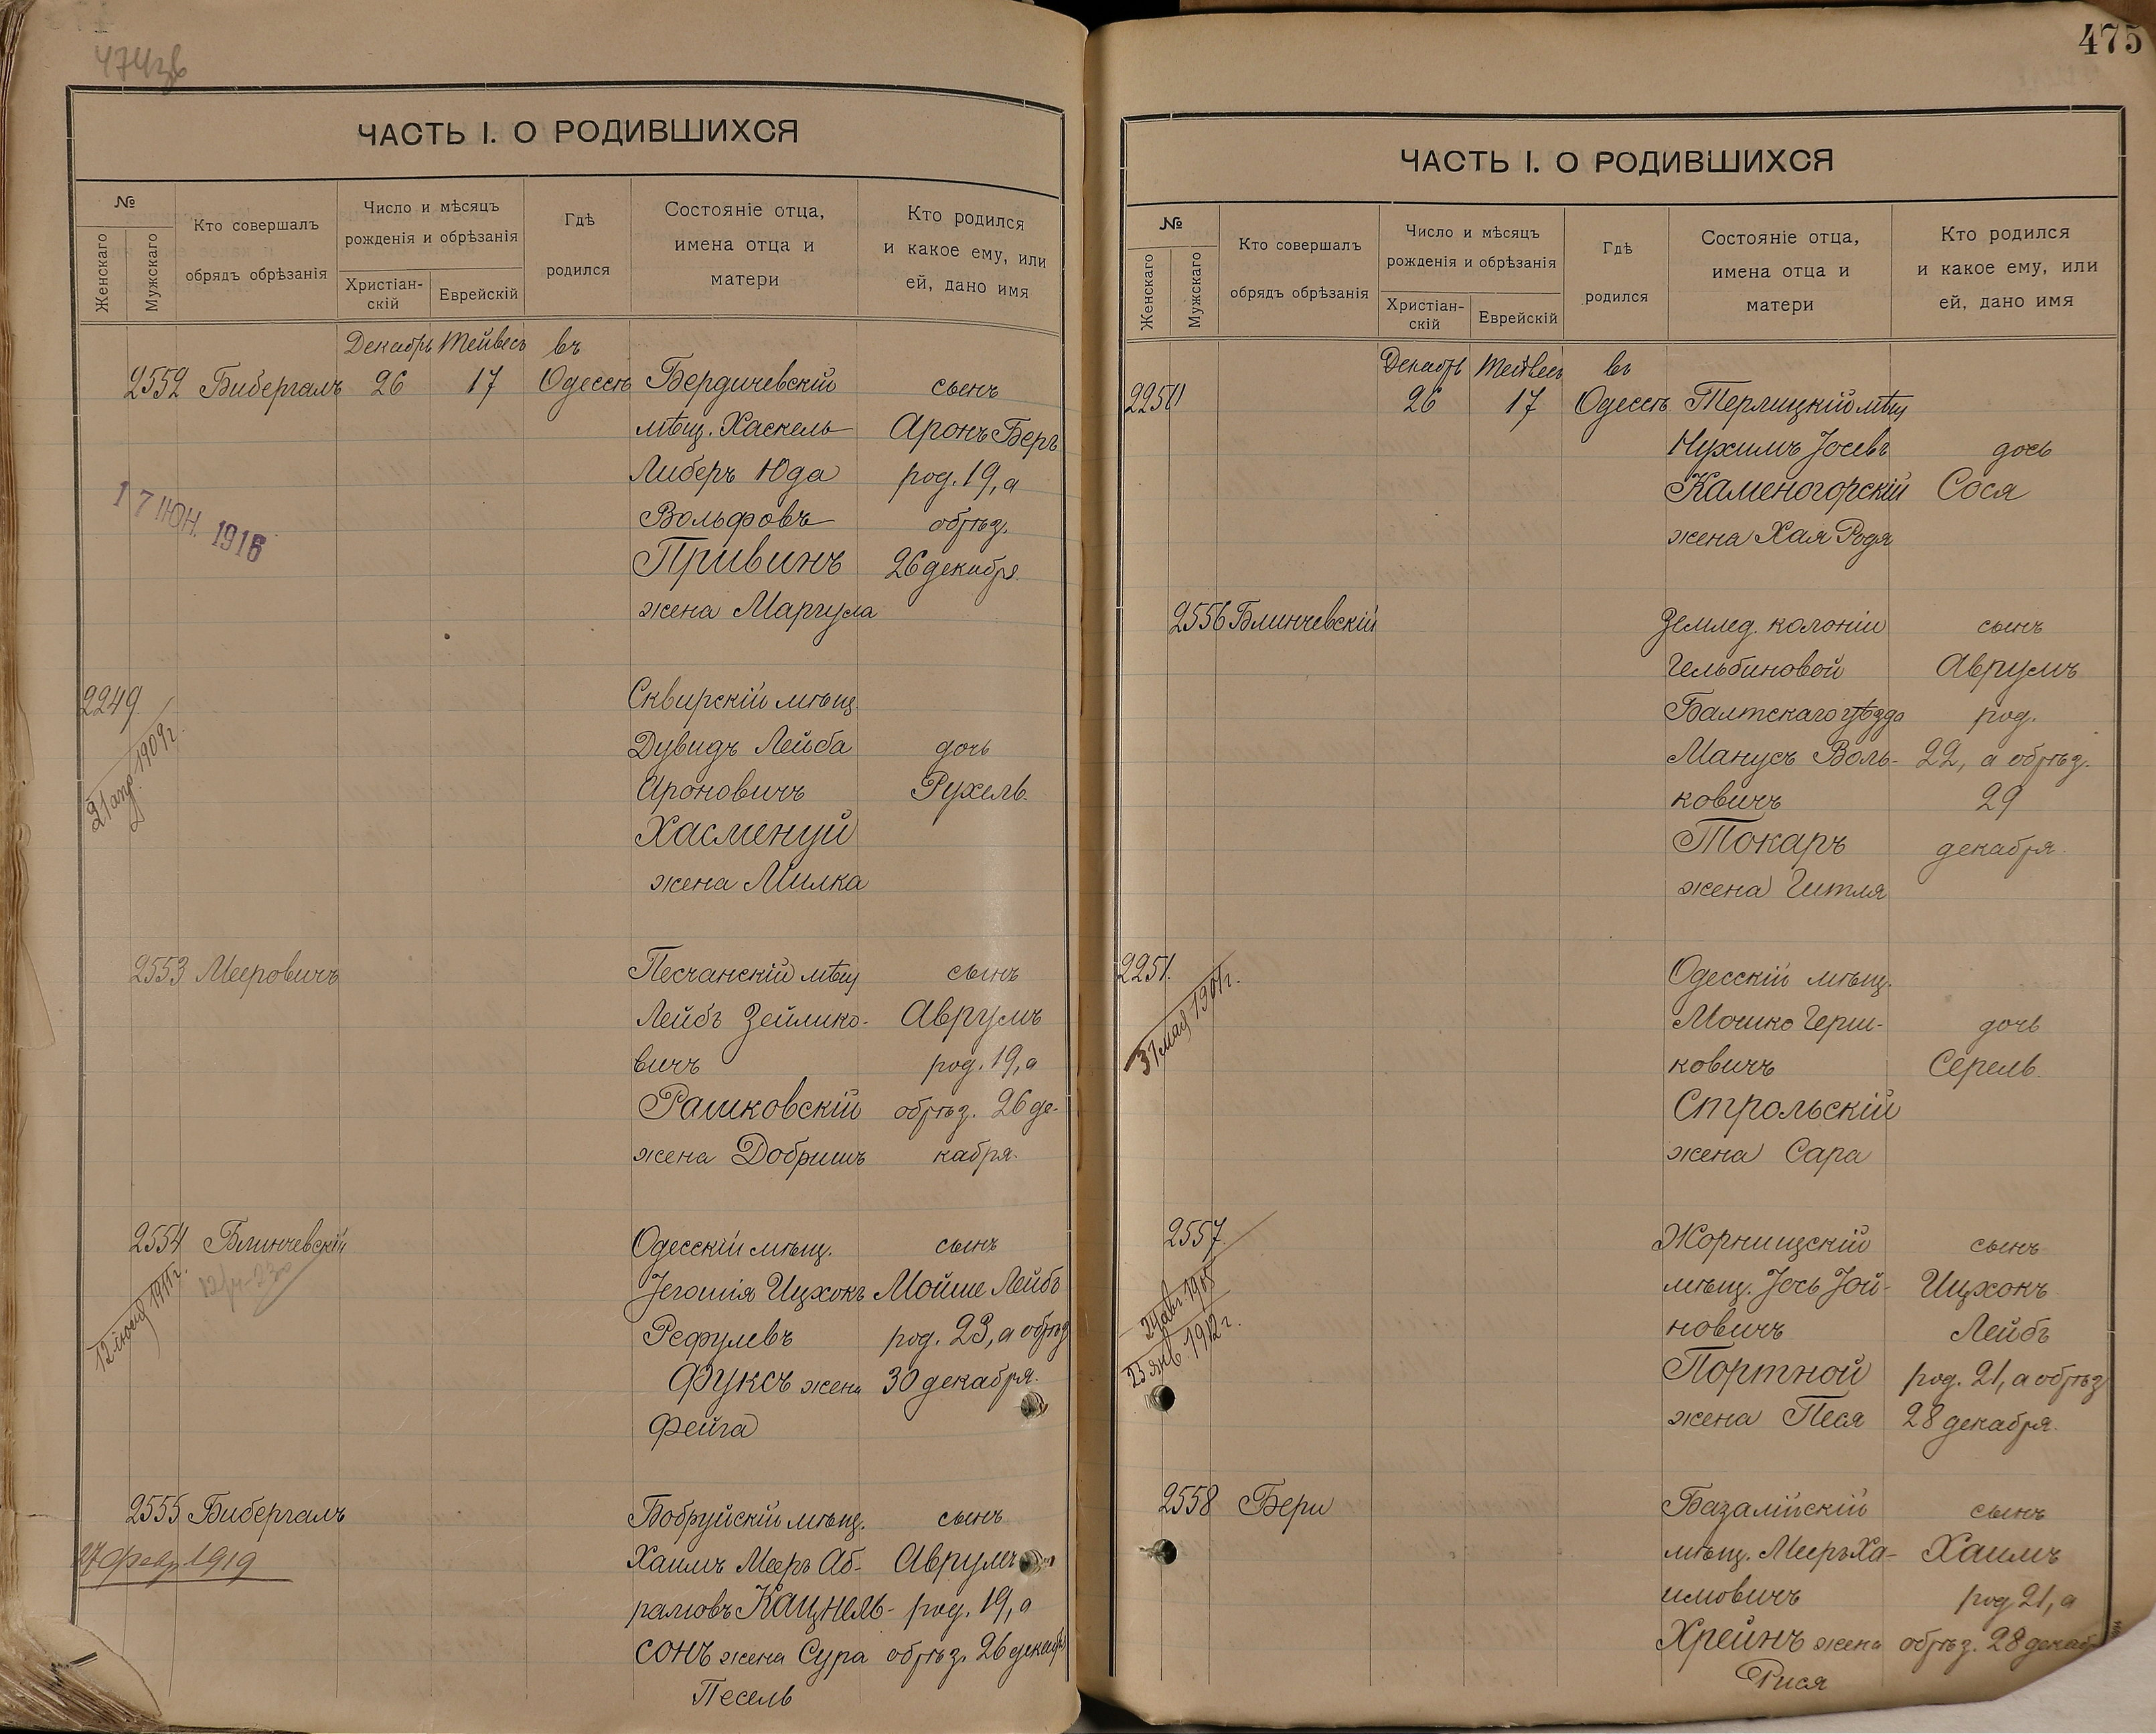 474 зв
ЧАСТЬ I. О РОДИВШИХСЯ
№
Женскаго
Мужскаго
Кто совершалъ
обрядъ обрѣзанія
Число и мѣсяцъ
рожденія и обрѣзанія
Христіан-
скій
Еврейскій
Гдѣ
родился
Состояніе отца,
имена отца и
матери
Кто родился
и какое ему, или
ей, дано имя
Декабрь Тейвесъ въ
2552 Бибергалъ 26 17 Одессѣ Бердичевскій сынъ
мѣщ. Хаскель Аронъ Беръ
Либеръ Юда род. 19, а
Вольфовъ обрѣз.
17 ІЮН. 1916
Привинъ 26 декабря
жена Маргула
2249 Сквирскій мѣщ.
21 апр. 1909 г.
Дувидъ Лейба дочь
Ароновичъ Рухель.
Хасминуй
жена Милка
2553 Мееровичъ Песчанскій мѣщ сынъ
Лейбъ Зейлико- Аврумъ
вичъ род. 19, а
Рашковскій обрѣз. 26 де-
жена Добришъ кабря.
2554 Блинчевскій Одесскій мѣщ. сынъ
12 іюня 1911 г.
Іегошія Ицхокъ Мойше Лейбъ
Рефулевъ род. 23, а обрѣз
Фуксъ жена 30 декабря.
Фейга
2555 Бибергалъ Бобруйскій мѣщ. сынъ
27 февр. 1919
Хаимъ Мееръ Аб- Аврумъ
рамовъ Кацнель- род. 19, а
сонъ жена Сура обрѣз. 26 декабр
Песель
475
ЧАСТЬ I. О РОДИВШИХСЯ
№
Женскаго
Мужскаго
Кто совершалъ
обрядъ обрѣзанія
Число и мѣсяцъ
рожденія и обрѣзанія
Христіан-
скій
Еврейскій
Гдѣ
родился
Состояніе отца,
имена отца и
матери
Кто родился
и какое ему, или
ей, дано имя
Декабрь Тейвесъ въ
2250 26 17 Одессѣ Терлицкій мѣщ
Нухимъ Іосевъ дочь
Каменогорскій Сося
жена Хая Рыдя
2556 Блинчевскій Землед. колоніи сынъ
Гельбиновой Аврумъ
Балтскаго уѣзда род.
Манусъ Воль- 22, а обрѣз.
ковичъ 29
Токаръ декабря.
жена Гитля
2251. Одесскій мѣщ.
31 мая 1901 г.
Мошко Герш- дочь
ковичъ Серель.
Строльскій
жена Сара
2557 Жорнищскій сынъ
24 авг. 1905
23 янв. 1912 г.
мѣщ. Іось Іой- Ицхокъ
новичъ Лейбъ
Портной род. 21, а обрѣз
жена Песя 28 декабря.
2558 Бери Базалійскій сынъ
мѣщ. Мееръ Ха- Хаимъ
имовичъ род 21, а
Хрейнъ жена обрѣз. 28 декаб
Рися